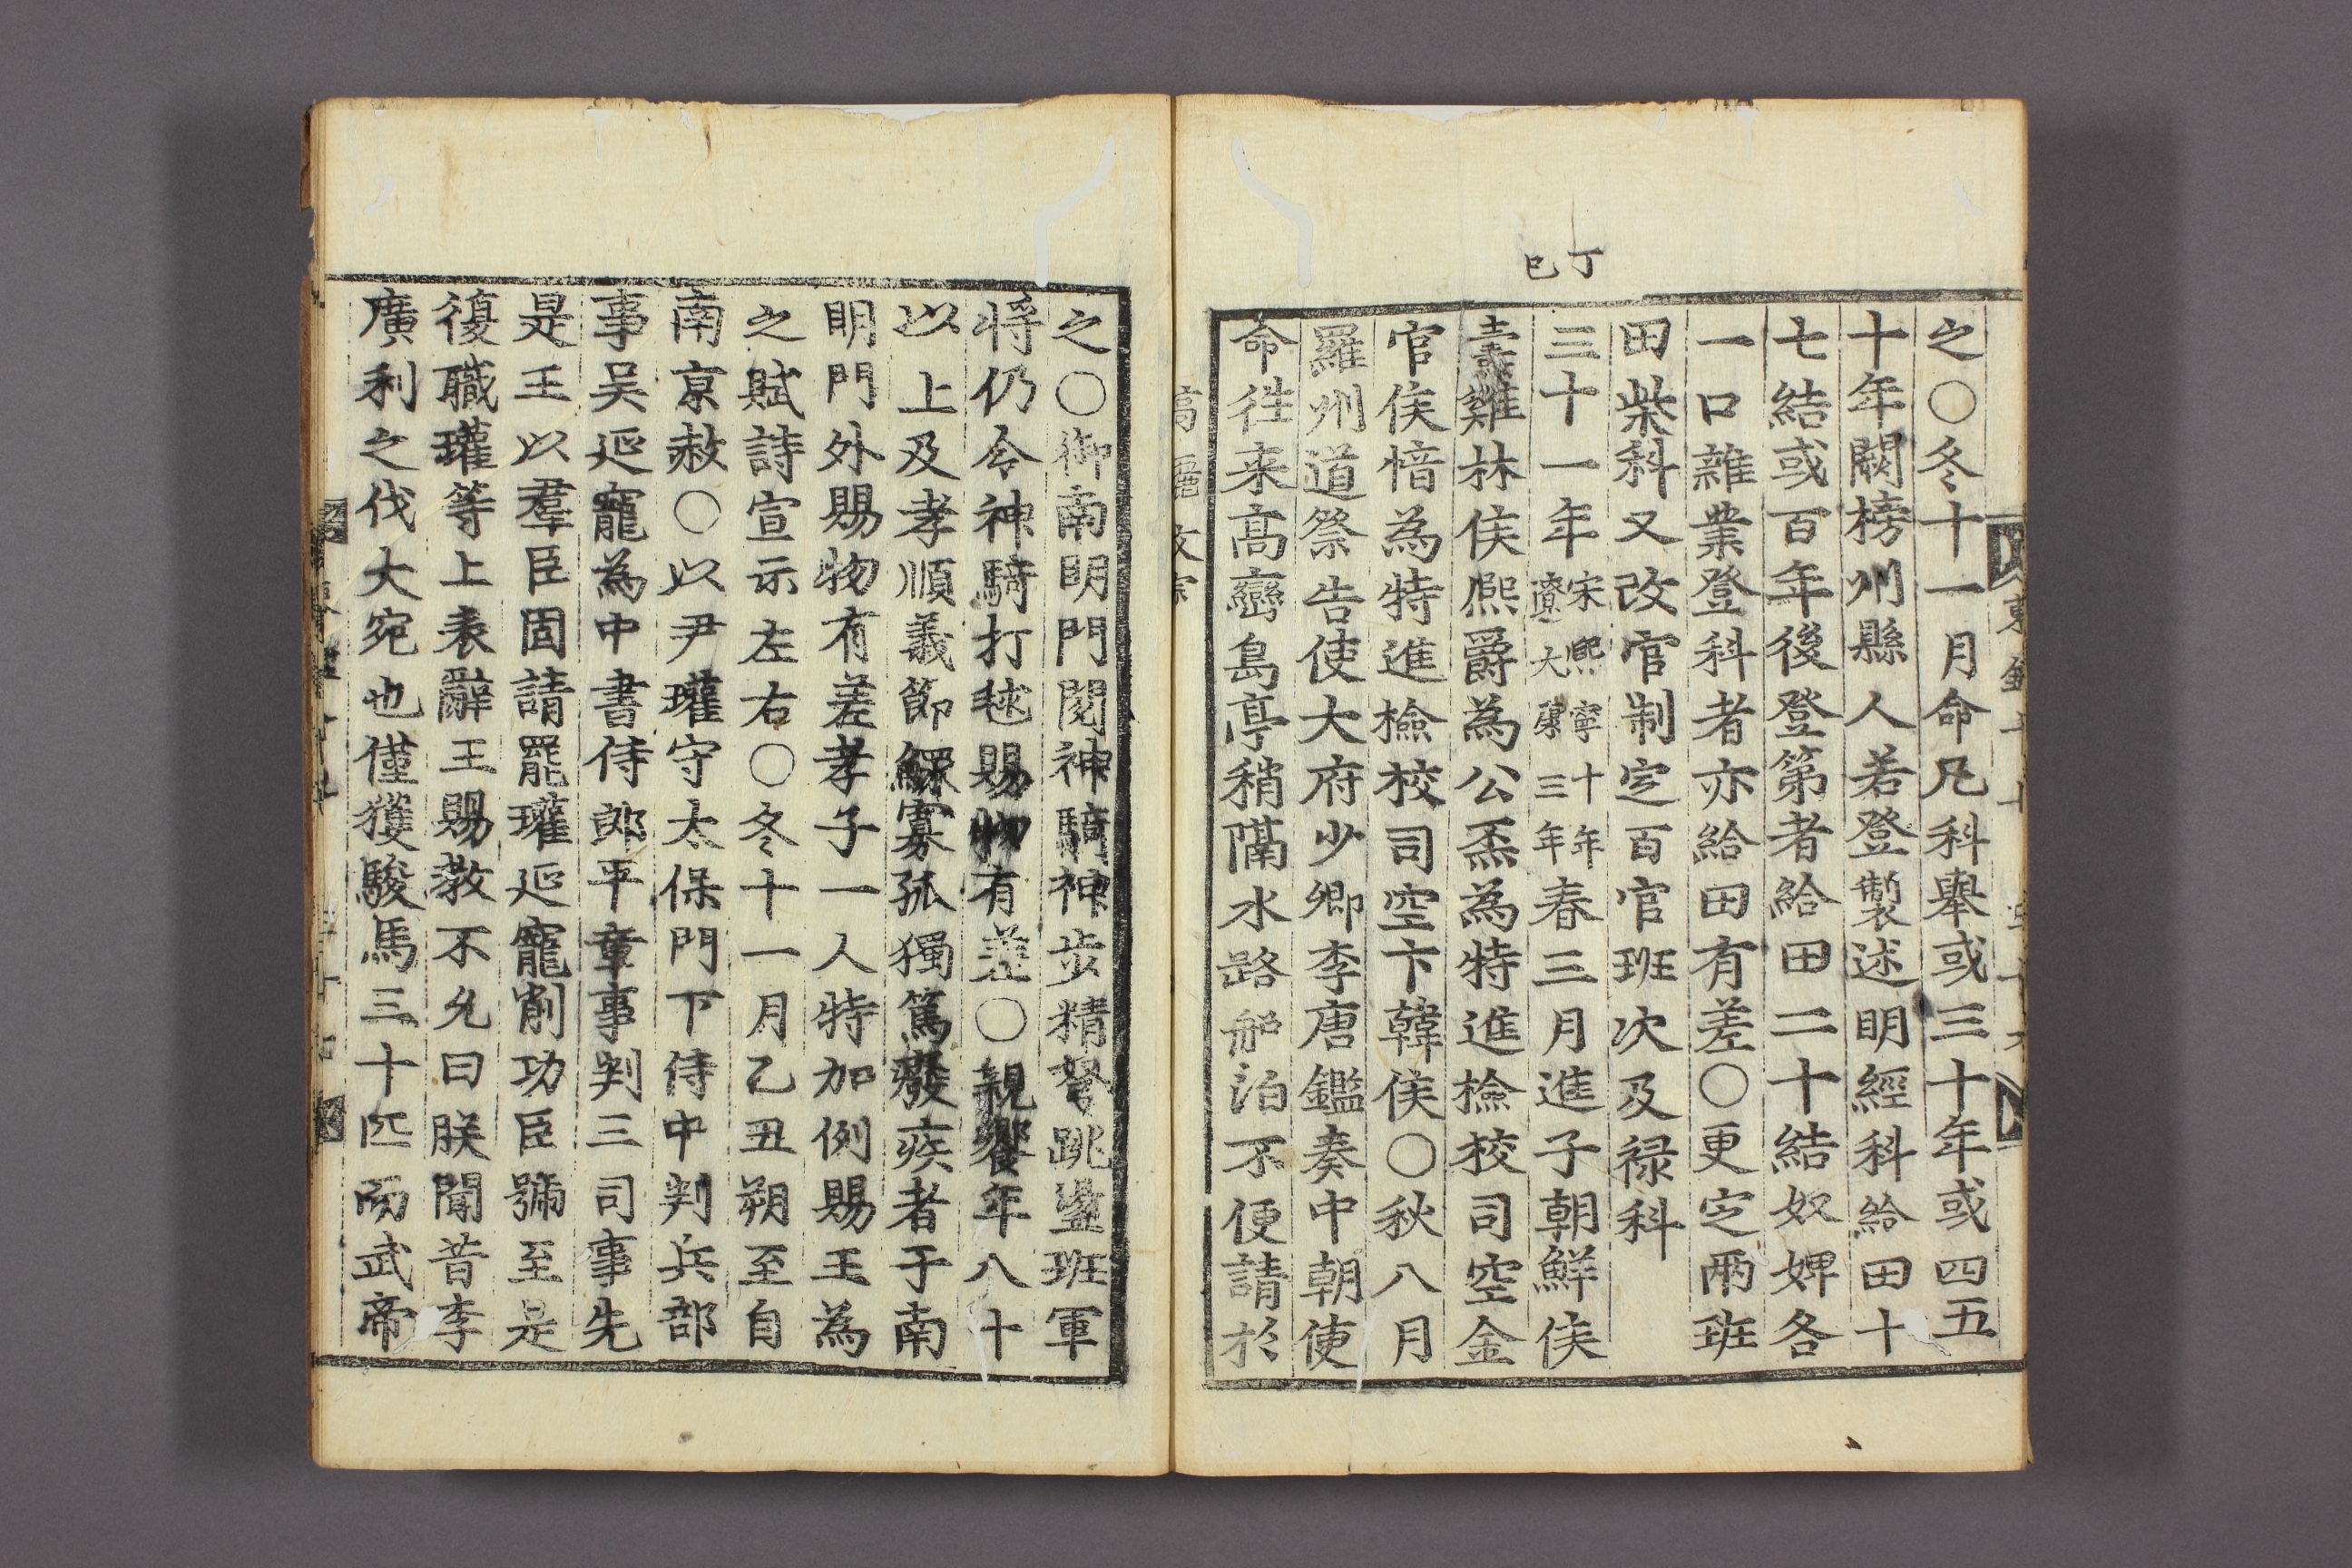 丁巳
之○冬十一月命凡科舉或三十年或四五
十年闕榜州縣人若登製述明經科給田十
七結或百年後登第者給田二十結奴婢各
一口雜業登科者亦給田有差○更定兩班
田柴科又改官制定百官班次及禄科
三十一年宋熙寧十年遼大康三年春三月進子朝鮮侯
𤫙雞林侯熈爵為公𤆬為特進檢校司空金
官侯愔為特進檢校司空卞韓侯○秋八月
羅州道祭告使大府少卿李唐鑑奏中朝使
命徃来髙巒島亭稍隔水路船泊不便請於
高麗文宗
之○御南明門閱神騎神步精弩跳盪班軍
将仍令神騎打毬賜物有差○親饗年八十
以上及孝順義節鰥寡孤獨篤癈疾者于南
明門外賜物有差孝子一人特加例賜王為
之賦詩宣示左右○冬十一月乙丑朔至自
南京赦○以尹瓘守太保門下侍中判兵部
事吴延寵為中書侍郎平章事判三司事先
是王以羣臣固請罷瓘延寵削功臣號至是
復職瓘等上表辭王賜教不允曰朕聞昔李
廣利之伐大宛也僅獲駿馬三十匹而武帝